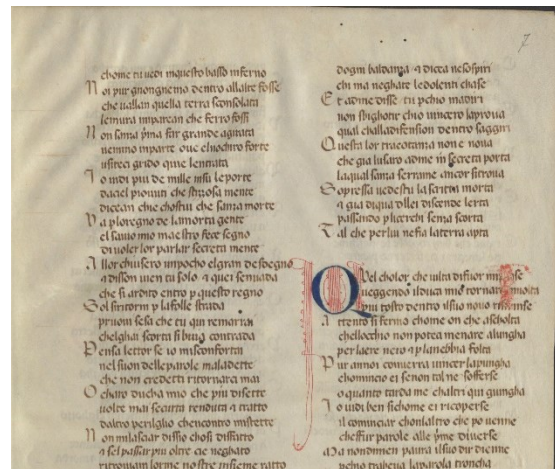 7
chome tu uedi inquesto basso inferno
N oi pur giongnemo dentro allalte fosse
che uallan quella terra sconsolata
lemura imparean che ferro fossi
N on sanza pria far grande agirata
uenimo imparte oue elnochiero forte
usciteci grido quie lentrata
I o uidi piu de mille insu leporte
daciel piouuti che stizosa mente
dicean chie chostui che sanza morte
V a ploregno de lamorta gente
el sauio mio maestro fece segno
di uoler lor parlar secreta mente
A llor chiusero unpocho el gran desdegno
a disson uien tu solo a quei senuada
che si ardito entro p questo regno
S ol si ritorni p la folle strada
pruoui sesa che tu qui remarrai
chelghai scorta si buia contrada
P ensa lettor se io misconfortai
nel suon delle parole maladette
che non credetti ritornarci mai
O charo ducha mio che piu disette
uolte mai securta renduta a tratto
daltro periglio chencontro mistette
N on milasciar dissio chosi disfatto
a sel passar piu oltre cie neghato
ritrouiam lorme nostre insieme ratto
dogni baldanza a dicea nesospiri
chi ma neghate ledolenti chase
E t adme disse tu pchio madiri
non sbighotir chio uincero laproua
qual challadifension dentro saggiri
Q uesta lor tracotanza non e noua
che gia lusaro adme in secreta porta
laqual sanza serrame ancor sitroua
S opressa uedestu la scritta morta
a gia diqua dilei discende lerta
passando p licerchi senza scorta
T al che perlui nefia laterra apta
Q Vel cholor che uilta difuor mi pse
ueggendo ilduca mio tornare in uolta
piu tosto dentro ilsuo nouo ristrinse
A ttento si fermo chome on che ascholta
chellocchio non potea menare alungha
per laere nero a p lanebbia folta
P ur annoi conuerra uincer lapungha
chomincio ei senon tal ne sofferse
o quanto tarda me chaltri qui giungha
I o uidi ben sichome ei ricoperse
il cominciar chonlaltro che po uenne
cheffur parole alle prime diuerse
M a nondimen paura ilsuo dir dienne
pchio traheua laparola troncha